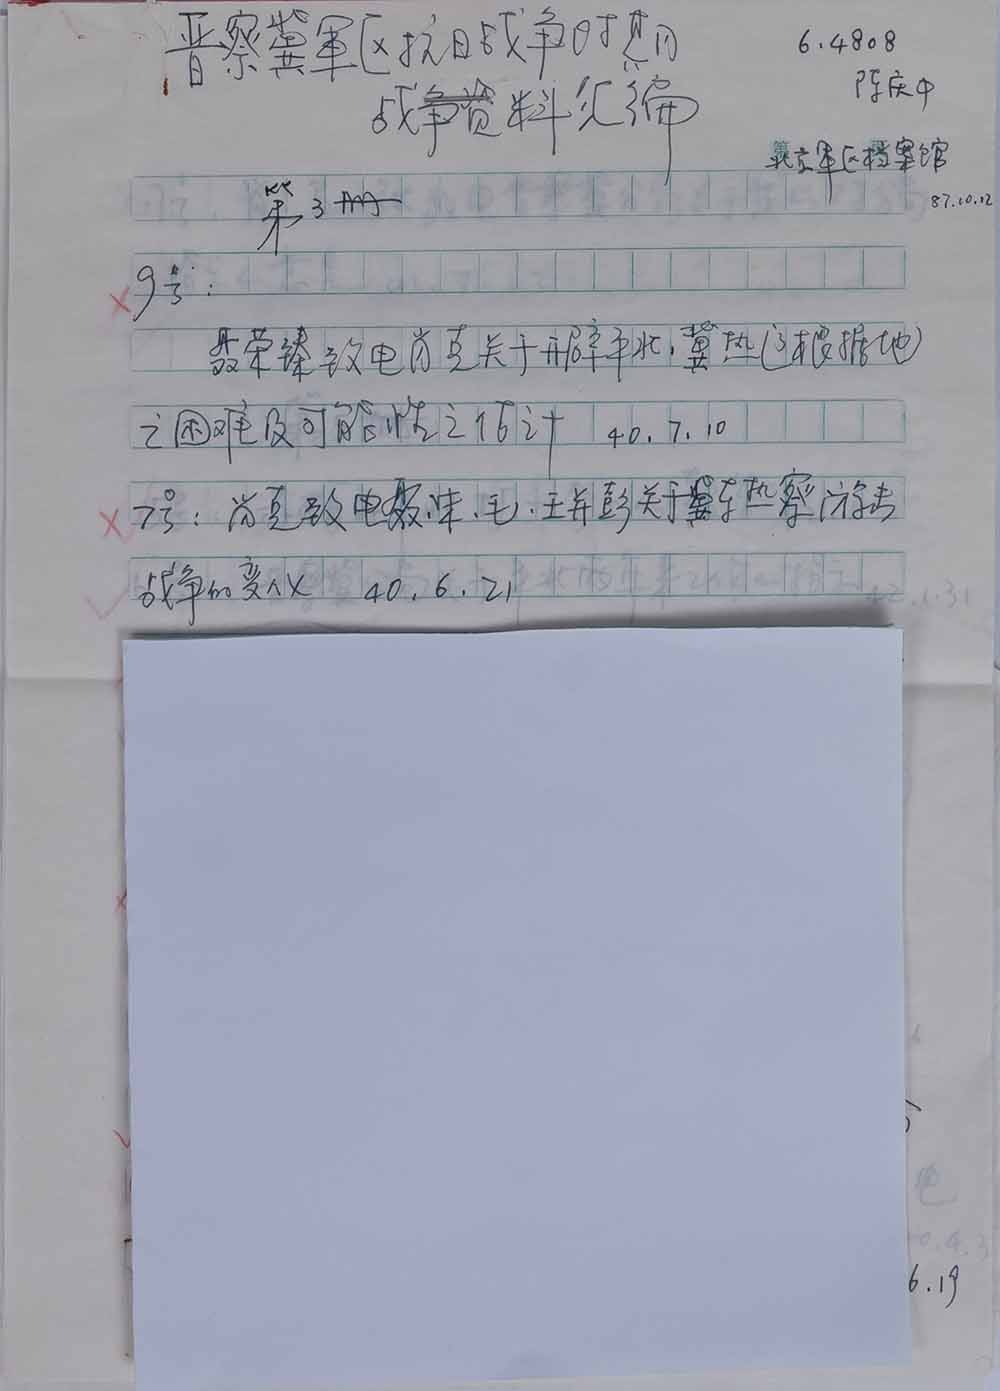 晋察冀军区抗日战争时期
战争资料汇编
6.4808
陈庆中
北京军区档案馆
87.10.12
第3册
9号：
聂荣臻致电肖克关于开辟平北、冀热辽根据地
之困难及可能性之估计 40.7.10
7号：肖克致电聂、朱、毛、王并彭关于冀东热察游击
战争的变化 40.6.21
42.1.31
地
0.4.3
6.19